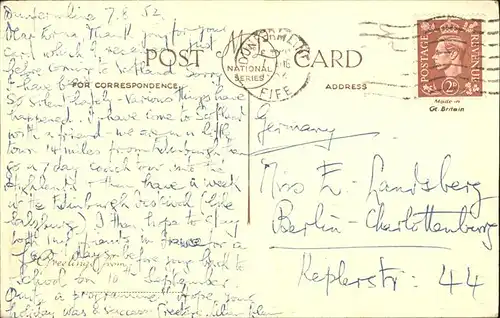 Dunfermline 7.8.52
Dear Erna, Thank you for your
card which I received just
before I came to Scotland. Sorry
I have been
so silent lately - various things have
happened. I have come to Scotland
with a friend, we are in a little
town 14 miles from Edinburgh,
go a 7 day coach tour into the
Highlands & then have a week
at the Edinburgh Festival (like
Salzburg). I then hope to stay
with my friends in France for a
few days before going back to
school on 10th September.
Quite a programme. I hope your
holiday was a success.
POST CARD
FOR CORRESPONDENCE.
NATIONAL
SERIES
ADDRESS
Greetings from
DUNFERMLINE
FIFE
POSTAGE REVENUE
2D
Made in
Gt. Britain
Germany
Miss E. Landsberg
Berlin-Charlottenburg
Keplerstr: 44